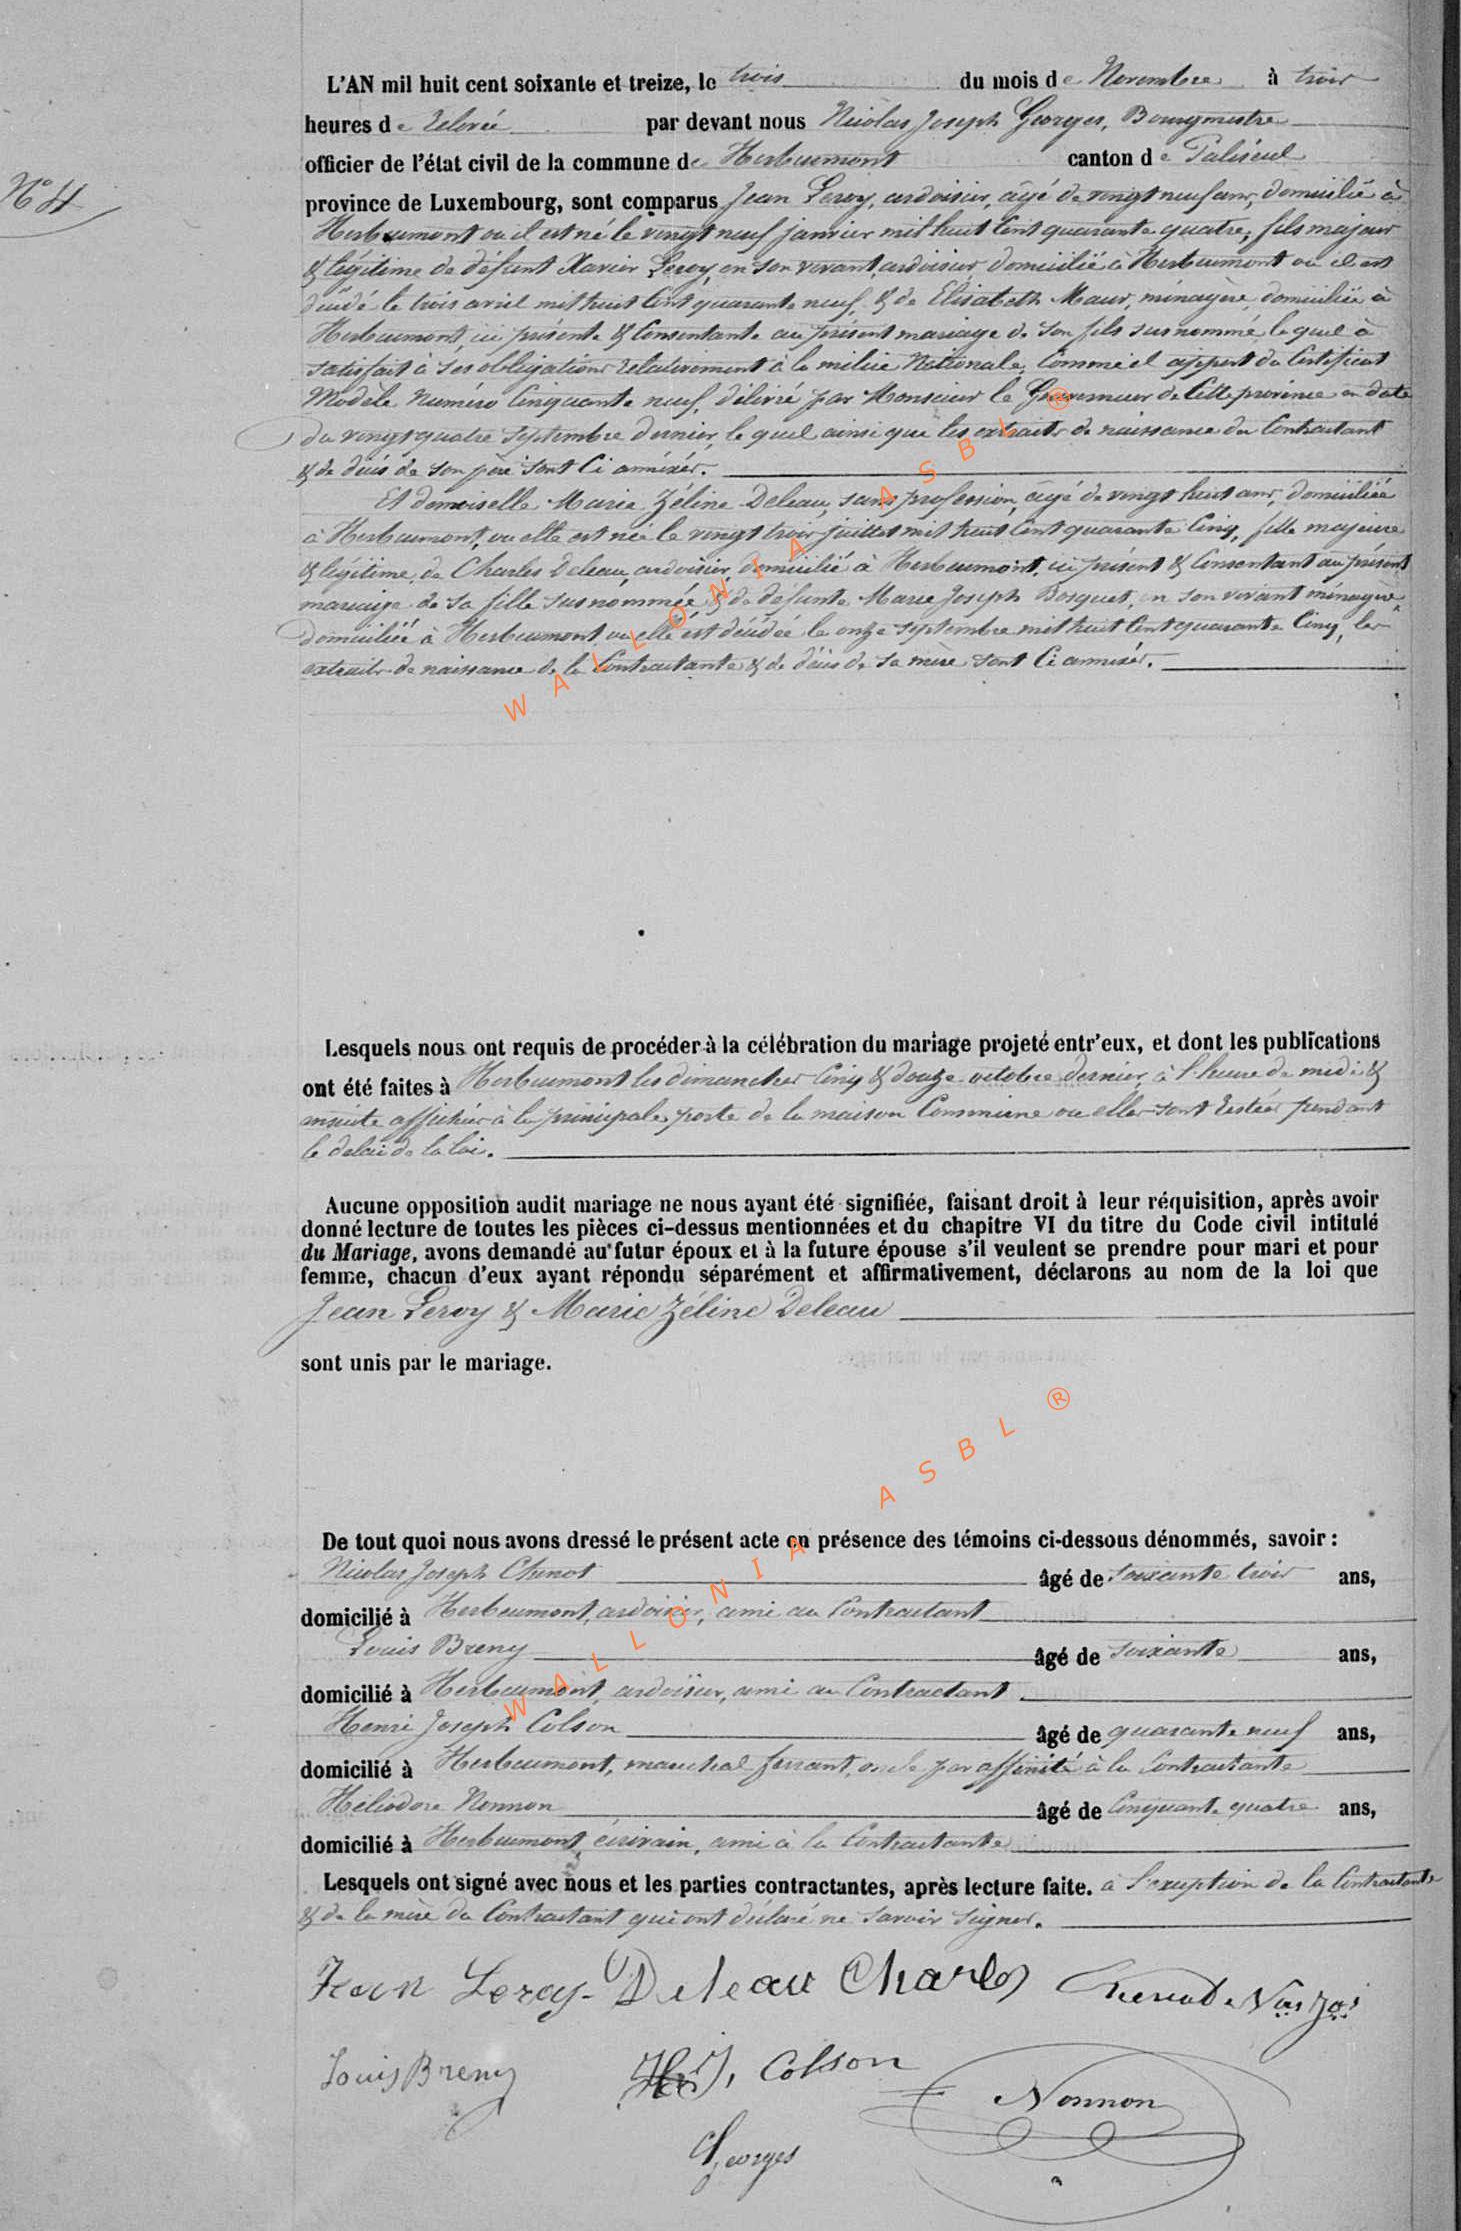 N° 4
L'AN mil huit cent soixante et treize, le trois du mois de Novembre à trois
heures de relevée par devant nous Nicolas Joseph Georges, Bourgmestre
officier de l'état civil de la commune de Herbeumont canton de Paliseul
province de Luxembourg, sont comparus Jean Leroy, ardoisier, âgé de vingt neuf ans, domicilié à
Herbeumont ou il est né le vingt neuf janvier mil huit cent quarante quatre, fils majeur
& légitime de défunt Xavier Leroy, en son vivant ardoisier, domicilié à Herbeumont ou il est
décédé le trois avril mil huit cent quarante neuf, & de Elisabeth Maur, ménagère, domiciliée à
Herbeumont, ici présente & consentante au présent mariage de son fils susnommé, lequel à
satisfait à ses obligations relativement à la milice Nationale, comme il appert du Certificat
Modèle Numéro Cinquante neuf, délivré par Monsieur le Gouverneur de cette province en date
du vingt quatre septembre dernier, lequel ainsi que les extraits de naissance du Contractant
& de décès de son père sont ci annéxés.
Et demoiselle Marie Zéline Deleau, sans profession, âgé de vingt huit ans, domiciliée
à Herbeumont, ou elle est née le vingt trois juillet mil huit cent quarante cinq, fille majeure
& légitime, de Charles Deleau, ardoisier, domicilié à Herbeumont, ici présent & consentant au présent
mariage de sa fille susnommée & de défunte Marie Joseph Bosquet, en son vivant ménagère
domiciliée à Herbeumont ou elle est décédée le onze septembre mil huit cent quarante cinq, les
extraits de naissance de la Contractante & de décès de sa mère sont ci annexés.
Lesquels nous ont requis de procéder à la célébration du mariage projeté entr'eux, et dont les publications
ont été faites à Herbeumont les dimanches cinq & douze octobre dernier, à l'heure de midi &
ensuite affichées à la principale porte de la maison Commune ou elles sont restées pendant
le delai de la loi.
Aucune opposition audit mariage ne nous ayant été signifiée, faisant droit à leur réquisition, après avoir
donné lecture de toutes les pièces ci-dessus mentionnées et du chapitre VI du titre du Code civil intitulé
du Mariage, avons demandé au futur époux et à la future épouse s'il veulent se prendre pour mari et pour
femme, chacun d'eux ayant répondu séparément et affirmativement, déclarons au nom de la loi que
Jean Leroy & Marie Zéline Deleau
sont unis par le mariage.
De tout quoi nous avons dressé le présent acte en présence des témoins ci-dessous dénommés, savoir :
Nicolas Joseph Chenot âgé de soixante trois ans,
domicilié à Herbeumont, ardoisier, ami au Contractant
Louis Breny âgé de soixante ans,
domicilié à Herbeumont, ardoisier, ami au Contractant
Henri Joseph Colson âgé de quarante neuf ans,
domicilié à Herbeumont, marechal ferrant, oncle par affinité à la Contractante
Héliodore Nonnon âgé de Cinquante quatre ans,
domicilié à Herbeumont, écrivain, ami à la Contractante
Lesquels ont signé avec nous et les parties contractantes, après lecture faite. à l'exception de la Contractante
& de la mère du Contractant qui ont déclaré ne savoir signer.
Jean Leroy Deleau Charles
Louis Breny H J. Colson Nonnon
Georges
WALLONIA ASBL ®
WALLONIA ASBL ®